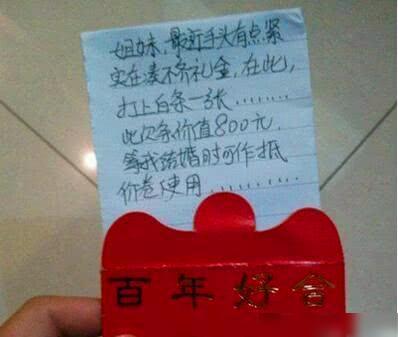 姐妹，最近手头有点紧
实在凑不齐礼金，在此，
打上白条一张........
此欠条价值800元，
等我结婚时可作抵
价卷使用............
百年好合